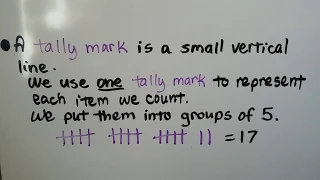 • A tally mark is a small vertical
line.
We use one tally mark to represent
each item we count.
We put them into groups of 5.
= 17